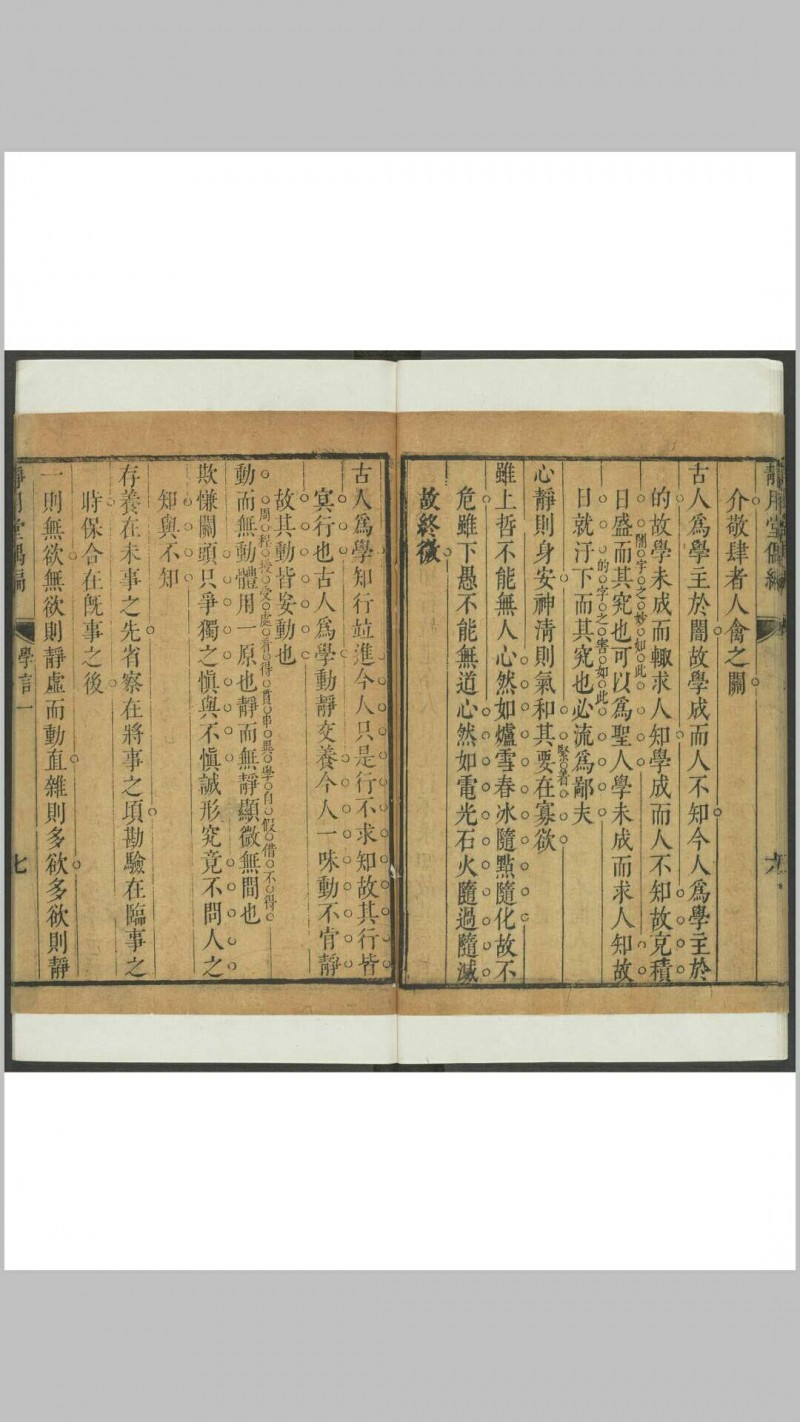 靜用堂偶編
介敬肆者人禽之關
古人爲學主於闇故學成而人不知今人爲學主於
的故學未成而輙求人知學成而人不知故克積
日盛而其究也可以爲聖人學未成而求人知故
闇字之妙如此
日就汙下而其究也必流爲鄙夫
的字之害如此
心靜則身安神清則氣和其要在寡欲
緊着
雖上哲不能無人心然如爐雪春冰隨點隨化故不
危雖下愚不能無道心然如電光石火隨過隨滅
故終微
古人爲學知行竝進今人只是行不求知故其行皆
冥行也古人爲學動靜交養今人一味動不肯靜
故其動皆妄動也
動而無動體用一原也靜而無靜顯微無間也
周程授受處看得貫串異學自假借不得
欺慊關頭只爭獨之愼與不愼誠形究竟不問人之
知與不知
存養在未事之先省察在將事之項勘驗在臨事之
時保合在旣事之後
一則無欲無欲則靜虛而動直雜則多欲多欲則靜
靜用堂偶編
學言一
七